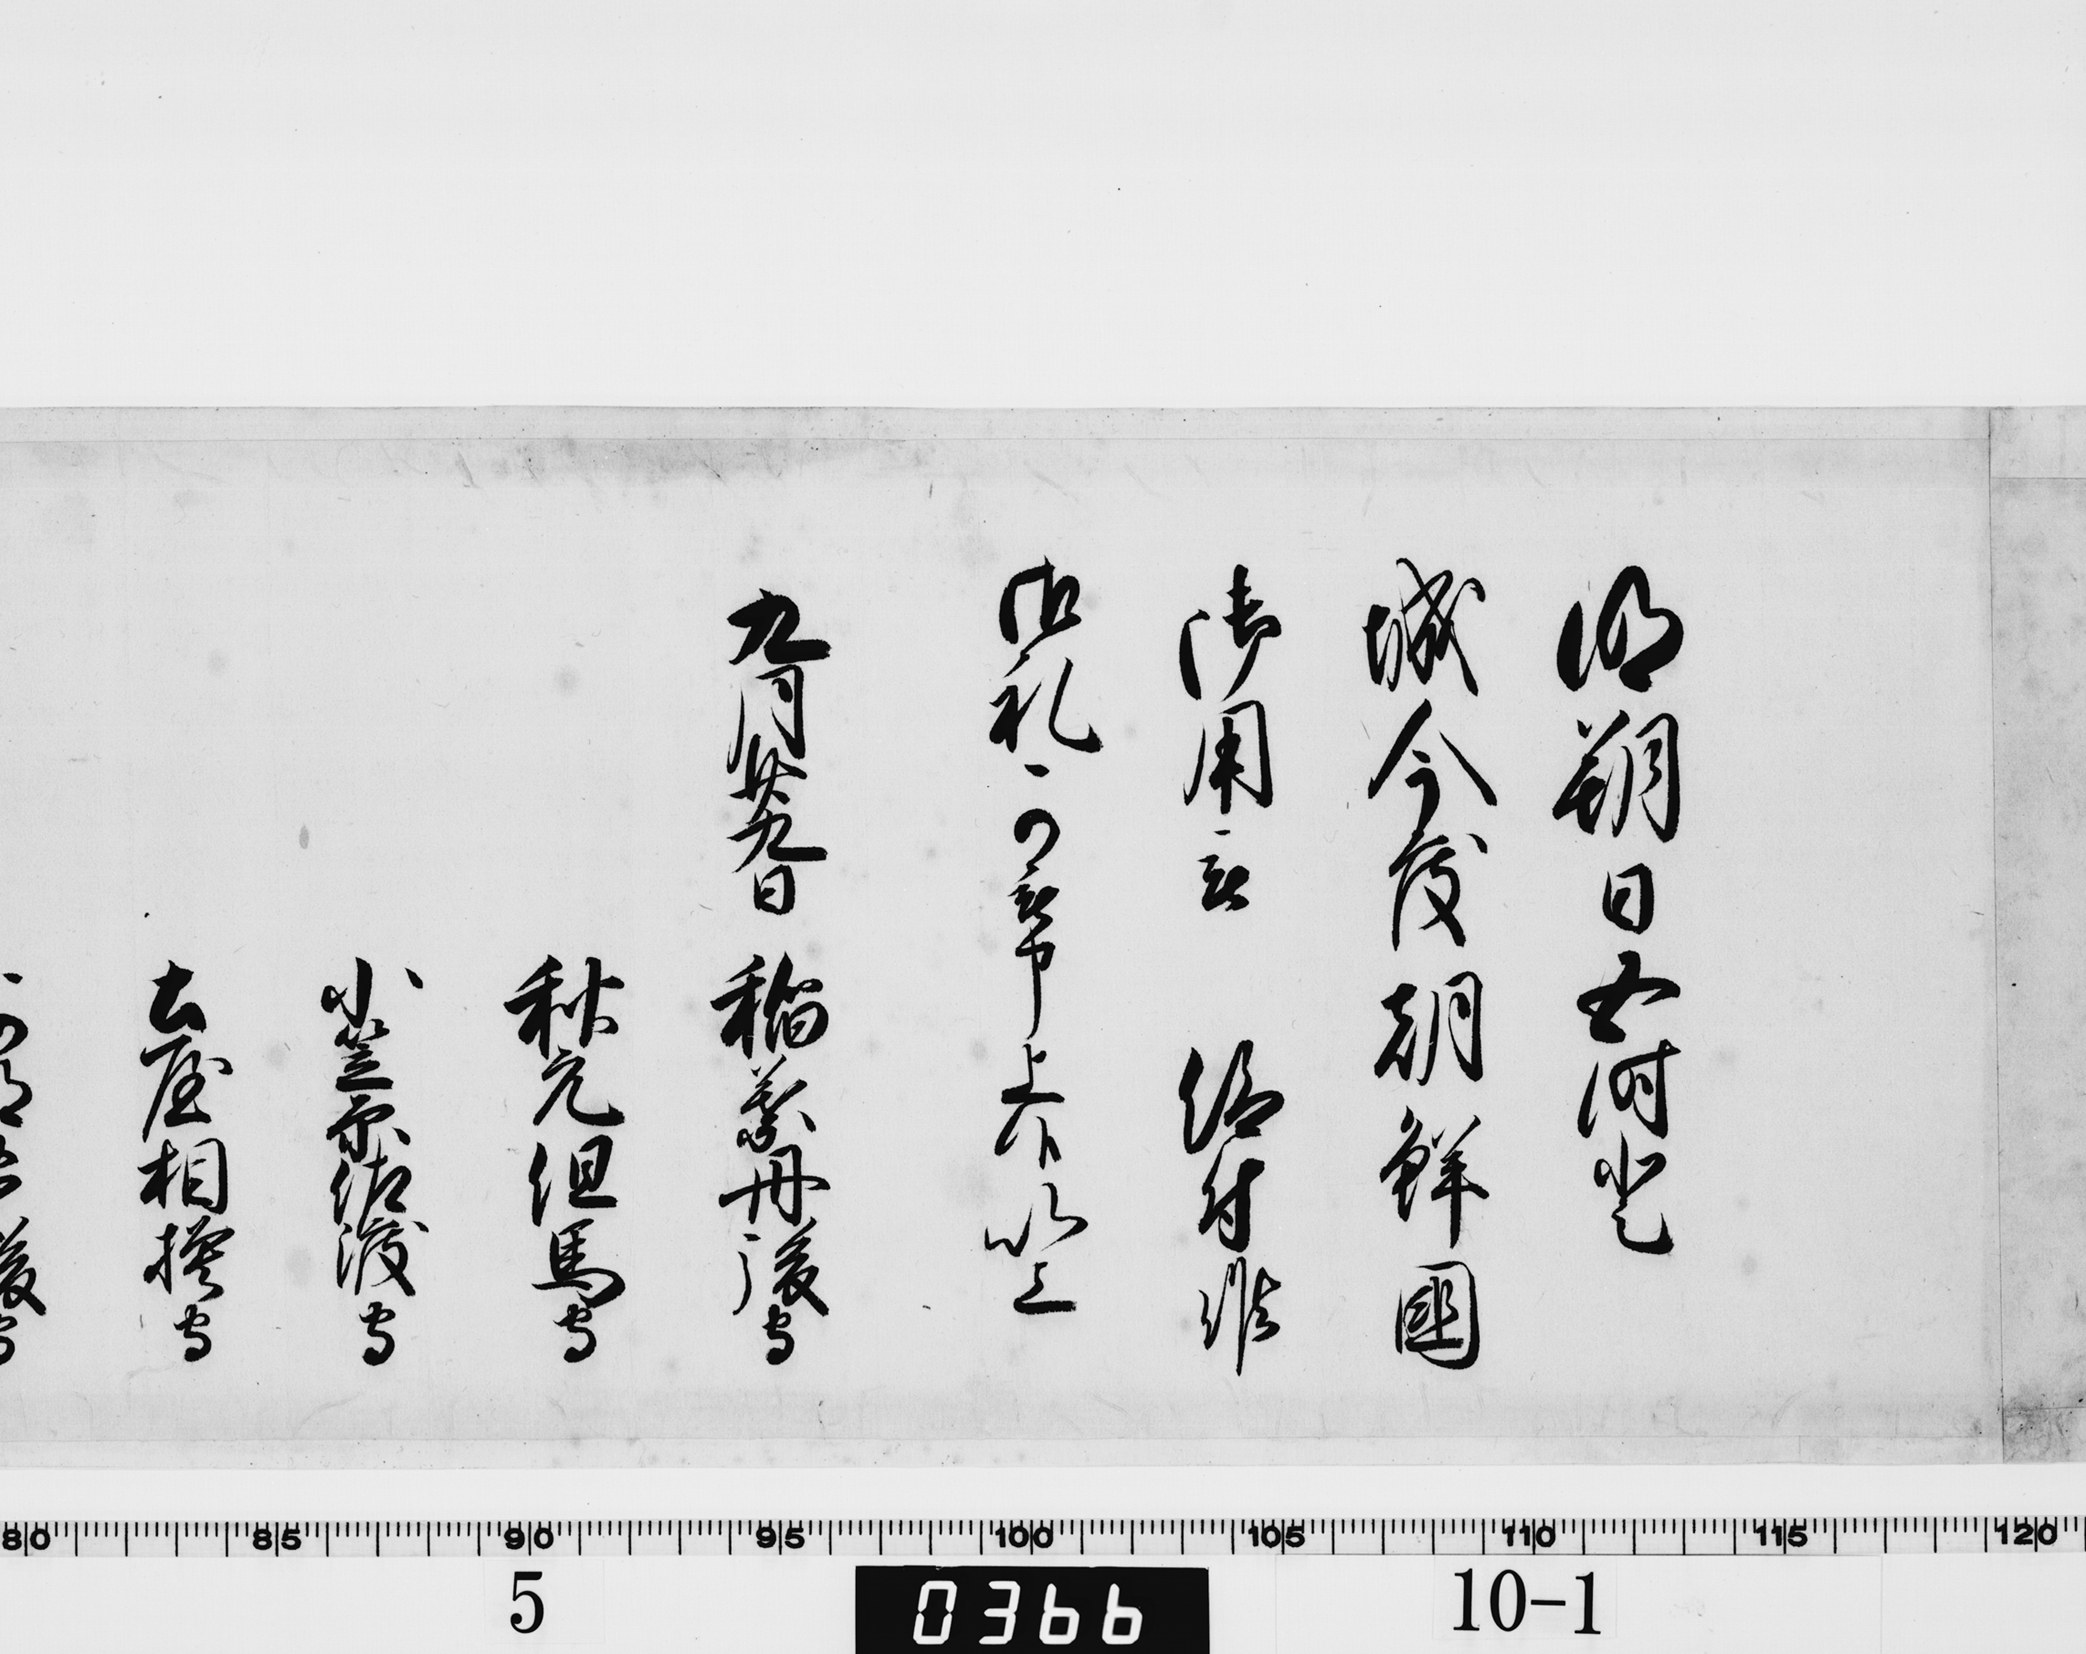 明朔日五時登
城今度朝鮮國
御用被　仰付候
御礼可被申上候以上
九月廿九日　稲葉丹後守
秋元但馬守
小笠原佐渡守
土屋相模守
80 85 90 95 100 105 110 115 120
5
0366
10-1